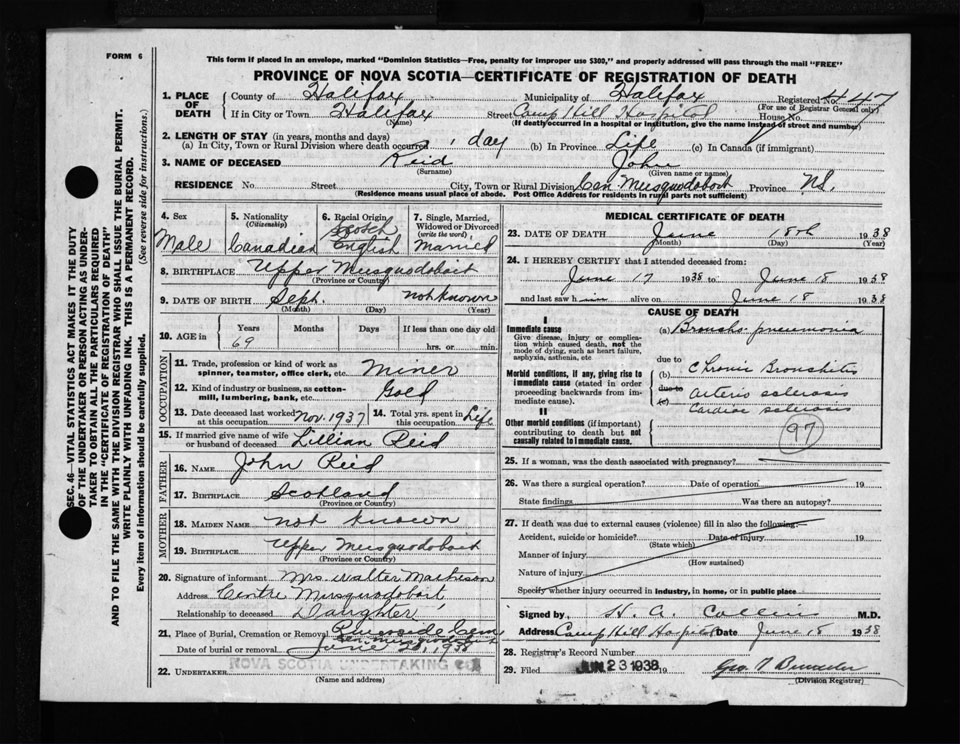 FORM 6
This form if placed in an envelope, marked "Dominion Statistics—Free, penalty for improper use $300," and properly addressed will pass through the mail "FREE"
PROVINCE OF NOVA SCOTIA—CERTIFICATE OF REGISTRATION OF DEATH
1. PLACE OF DEATH
County of Halifax Municipality of Halifax Registered No. 447
(For use of Registrar General only)
If in City or Town Halifax Street Camp Hill Hospital House No.
(Name) (If death occurred in a hospital or institution, give the name instead of street and number)
2. LENGTH OF STAY (in years, months and days)
(a) In City, Town or Rural Division where death occurred 1 day (b) In Province Life (c) In Canada (if immigrant)
3. NAME OF DECEASED Reid John
(Surname) (Given name or names)
RESIDENCE No. Street City, Town or Rural Division Cen Musquodoboit Province NS.
(Residence means usual place of abode. Post Office Address for residents in rural parts not sufficient)
4. Sex Male
5. Nationality (Citizenship) Canadian
6. Racial Origin Scotch English
7. Single, Married, Widowed or Divorced (write the word) Married
8. BIRTHPLACE Upper Musquodoboit
(Province or County)
9. DATE OF BIRTH Sept. not known
(Month) (Day) (Year)
10. AGE in Years Months Days If less than one day
69 hrs. or min.
OCCUPATION
11. Trade, profession or kind of work as spinner, teamster, office clerk, etc. Miner
12. Kind of industry or business, as cotton-mill, lumbering, bank, etc. Gold
13. Date deceased last worked at this occupation Nov. 1937 14. Total yrs. spent in this occupation Life
15. If married give name of wife or husband of deceased Lillian Reid
FATHER
16. NAME John Reid
17. BIRTHPLACE Scotland
(Province or Country)
MOTHER
18. MAIDEN NAME not known
19. BIRTHPLACE Upper Musquodoboit
(Province or Country)
20. Signature of informant Mrs. Walter Matheson
Address Centre Musquodoboit
Relationship to deceased Daughter
21. Place of Burial, Cremation or Removal Riverside Cem
Cen. Musquodoboit
Date of burial or removal June 20, 1938
22. UNDERTAKER NOVA SCOTIA UNDERTAKING CO.
(Name and address)
MEDICAL CERTIFICATE OF DEATH
23. DATE OF DEATH June 18th 1938
(Month) (Day) (Year)
24. I HEREBY CERTIFY that I attended deceased from:
June 17 1938 to June 18 1938
and last saw him alive on June 18 1938
CAUSE OF DEATH
I
Immediate cause
Give disease, injury or complication which caused death, not the mode of dying, such as heart failure, asphyxia, asthenia, etc
(a) Broncho-pneumonia
due to
Morbid conditions, if any, giving rise to immediate cause (stated in order proceeding backwards from immediate cause).
(b) Chronic Bronchitis
due to Arterio sclerosis
(c) Cardiac sclerosis
II
Other morbid conditions (if important) contributing to death but not causally related to immediate cause.
97
25. If a woman, was the death associated with pregnancy?
26. Was there a surgical operation? Date of operation 19
State findings Was there an autopsy?
27. If death was due to external causes (violence) fill in also the following:—
Accident, suicide or homicide? Date of injury 19
(State which)
Manner of injury
(How sustained)
Nature of injury
Specify whether injury occurred in industry, in home, or in public place
Signed by H. A. Collins M.D.
Address Camp Hill Hospital Date June 18 1938
28. Registrar's Record Number
29. Filed JUN 23 1938 19
(Division Registrar)
SEC. 46—VITAL STATISTICS ACT MAKES IT THE DUTY
OF THE UNDERTAKER OR PERSON ACTING AS UNDER-
TAKER TO OBTAIN ALL THE PARTICULARS REQUIRED
IN THE "CERTIFICATE OF REGISTRATION OF DEATH"
AND TO FILE THE SAME WITH THE DIVISION REGISTRAR WHO SHALL ISSUE THE BURIAL PERMIT.
WRITE PLAINLY WITH UNFADING INK. THIS IS A PERMANENT RECORD.
Every item of information should be carefully supplied. (See reverse side for instructions.)